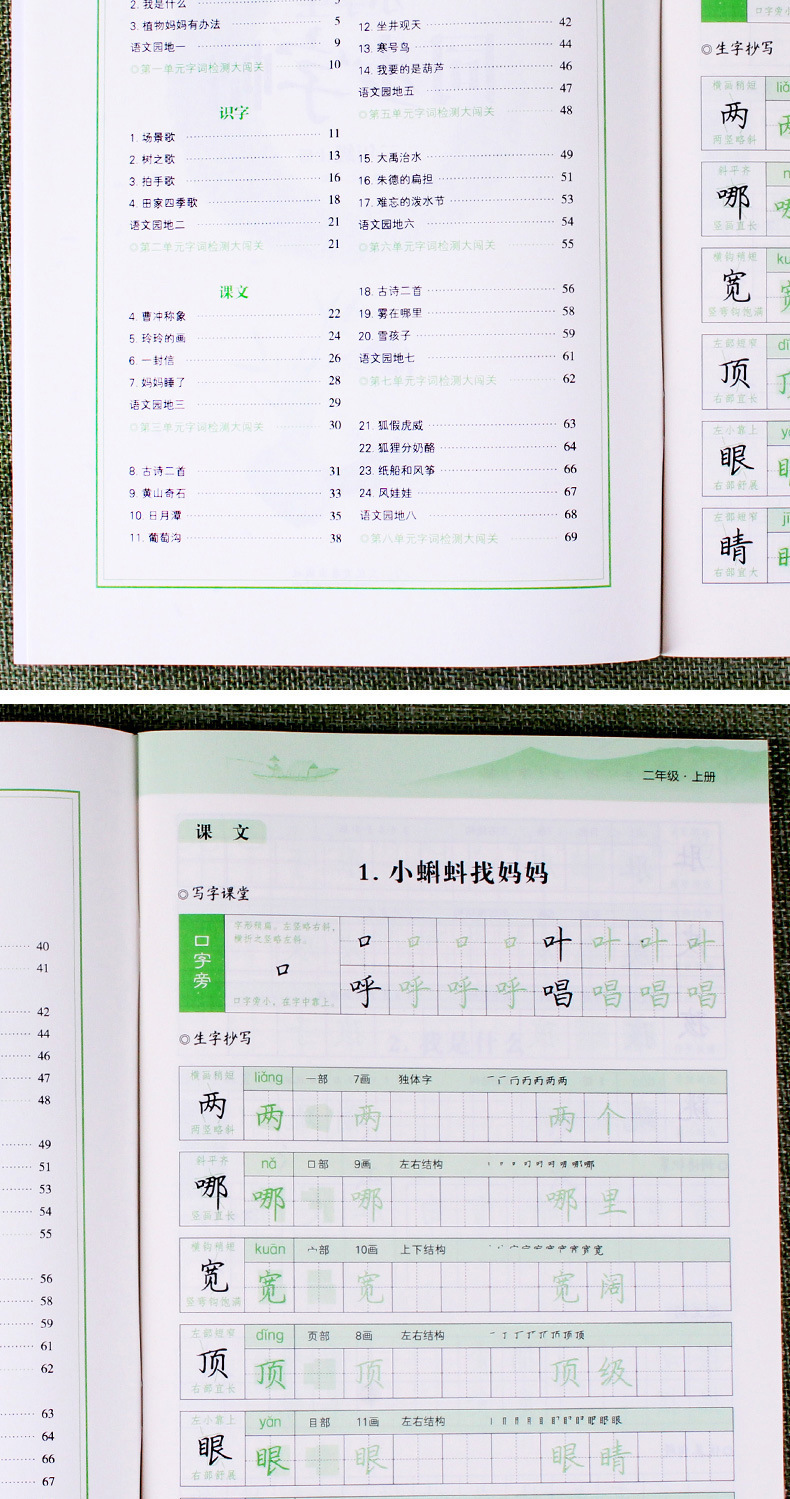 2. 我是什么
3. 植物妈妈有办法 5
语文园地一 9
◎第一单元字词检测大闯关 10
识字
1. 场景歌 11
2. 树之歌 13
3. 拍手歌 16
4. 田家四季歌 18
语文园地二 21
◎第二单元字词检测大闯关 21
课文
4. 曹冲称象 22
5. 玲玲的画 24
6. 一封信 26
7. 妈妈睡了 28
语文园地三 29
◎第三单元字词检测大闯关 30
8. 古诗二首 31
9. 黄山奇石 33
10. 日月潭 35
11. 葡萄沟 38
12. 坐井观天 42
13. 寒号鸟 44
14. 我要的是葫芦 46
语文园地五 47
◎第五单元字词检测大闯关 48
15. 大禹治水 49
16. 朱德的扁担 51
17. 难忘的泼水节 53
语文园地六 54
◎第六单元字词检测大闯关 55
18. 古诗二首 56
19. 雾在哪里 58
20. 雪孩子 59
语文园地七 61
◎第七单元字词检测大闯关 62
21. 狐假虎威 63
22. 狐狸分奶酪 64
23. 纸船和风筝 66
24. 风娃娃 67
语文园地八 68
◎第八单元字词检测大闯关 69
◎生字抄写
横画稍短
两
两竖略斜
斜平齐
哪
竖画直长
横钩稍短
宽
竖弯钩饱满
左部短窄
顶
右部宜长
左小靠上
眼
右部舒展
左部短窄
睛
右部宜大
40
41
42
44
46
47
48
49
51
53
54
55
56
58
59
61
62
63
64
66
67
二年级·上册
课 文
1. 小蝌蚪找妈妈
◎写字课堂
口字旁
字形稍扁，左竖略右斜，
横折之竖略左斜。
口
口字旁小，在字中靠上。
口 口 口 口 叶 叶 叶 叶
呼 呼 呼 呼 唱 唱 唱 唱
◎生字抄写
横画稍短 两 两竖略斜
liǎng 一部 7画 独体字
两 两 两 个
斜平齐 哪 竖画直长
nǎ 口部 9画 左右结构
哪 哪 哪 里
横钩稍短 宽 竖弯钩饱满
kuān 宀部 10画 上下结构
宽 宽 宽 阔
左部短窄 顶 右部宜长
dǐng 页部 8画 左右结构
顶 顶 顶 级
左小靠上 眼 右部舒展
yǎn 目部 11画 左右结构
眼 眼 眼 睛